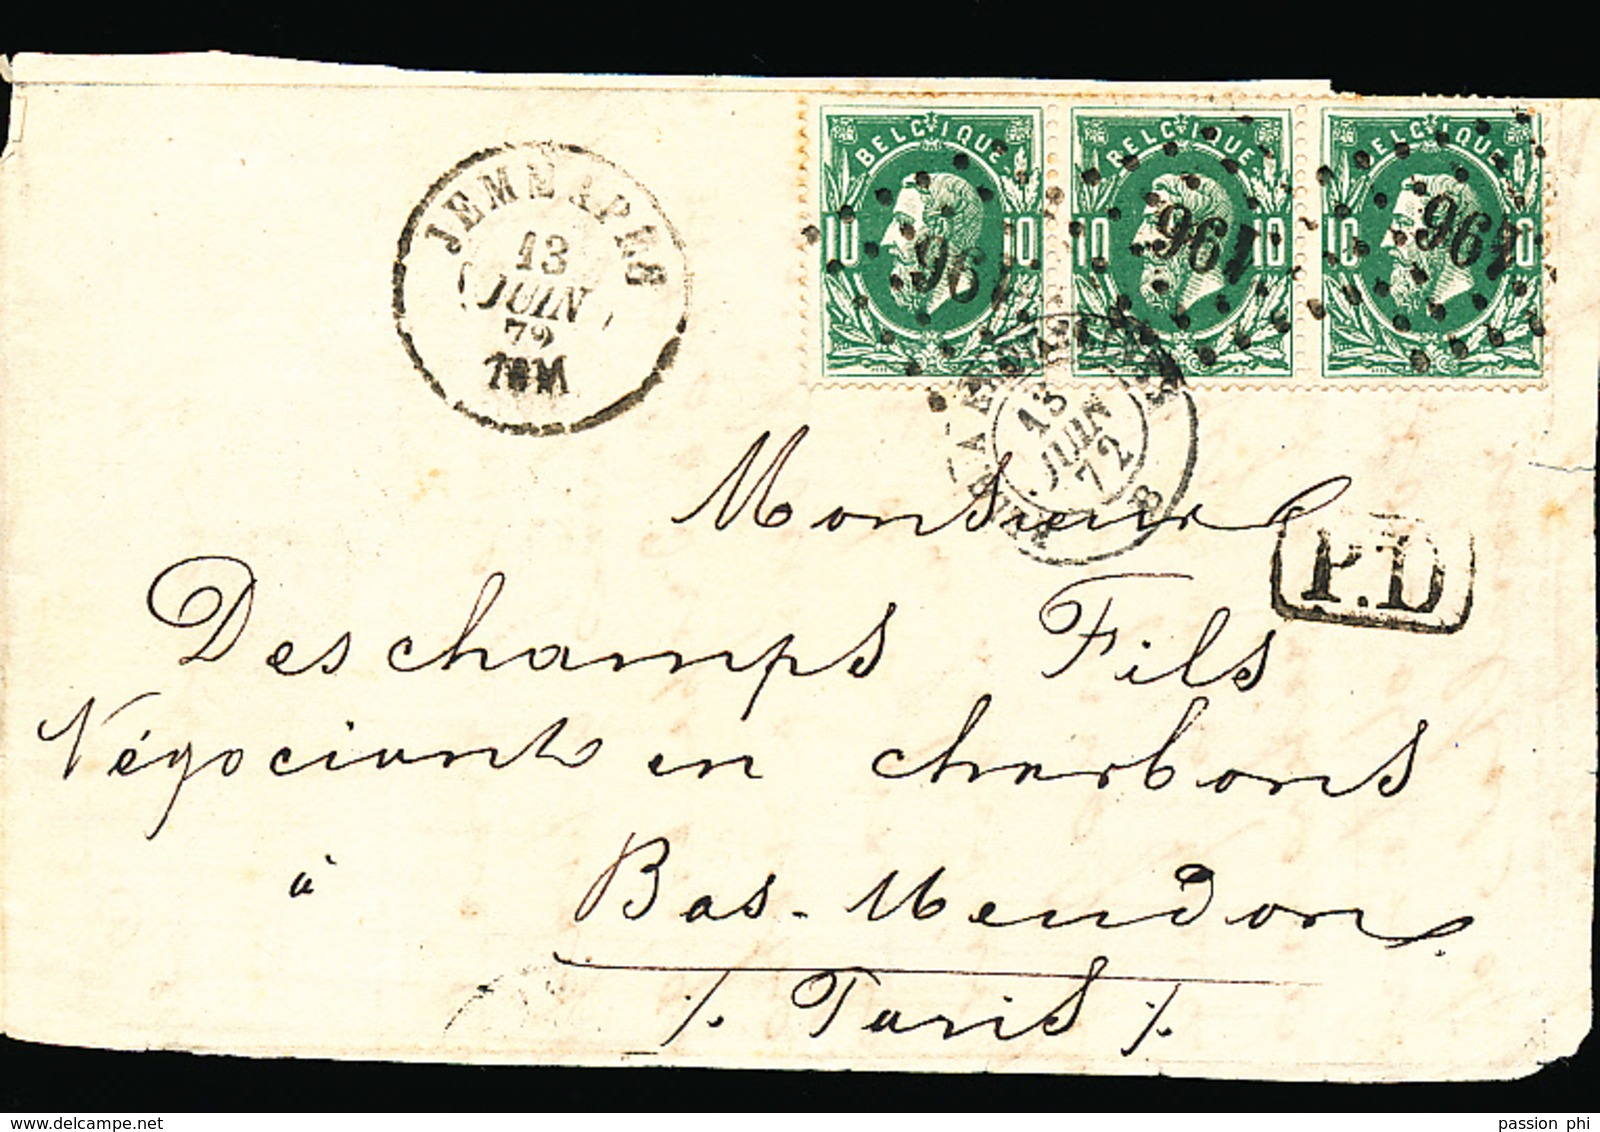 BELGIQUE BELGIQUE BELGIQUE
10 10 10 10 10 10
196 196 196
JEMMAPES
13
JUIN
72
13
JUIN
72
Monsieur
P.D
Deschamps Fils
Négociants en charbons
à Bas-Meudon
/. Paris /.
www.delcampe.net
passion phi